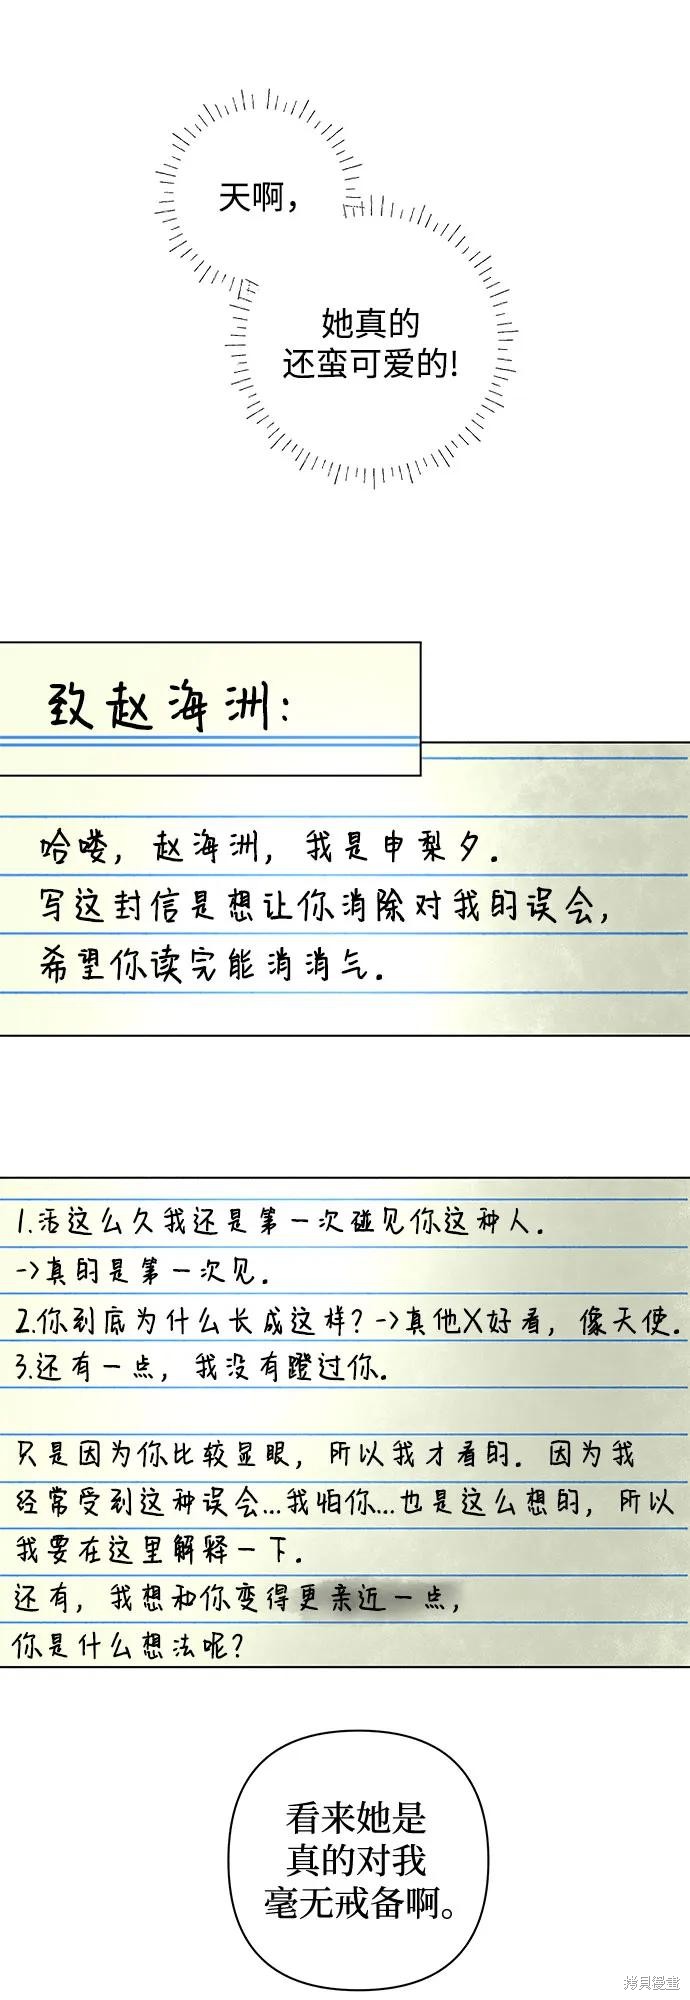 天啊，
她真的
还蛮可爱的!
致赵海洲:
哈喽, 赵海洲, 我是申梨夕.
写这封信是想让你消除对我的误会,
希望你读完能消消气.
1.活这么久我还是第一次碰见你这种人.
->真的是第一次见.
2.你到底为什么长成这样? ->真他X好看, 像天使.
3.还有一点, 我没有蹬过你.
只是因为你比较显眼, 所以我才看的. 因为我
经常受到这种误会...我怕你...也是这么想的, 所以
我要在这里解释一下.
还有, 我想和你变得更亲近一点,
你是什么想法呢?
看来她是
真的对我
毫无戒备啊。
拷貝漫畫